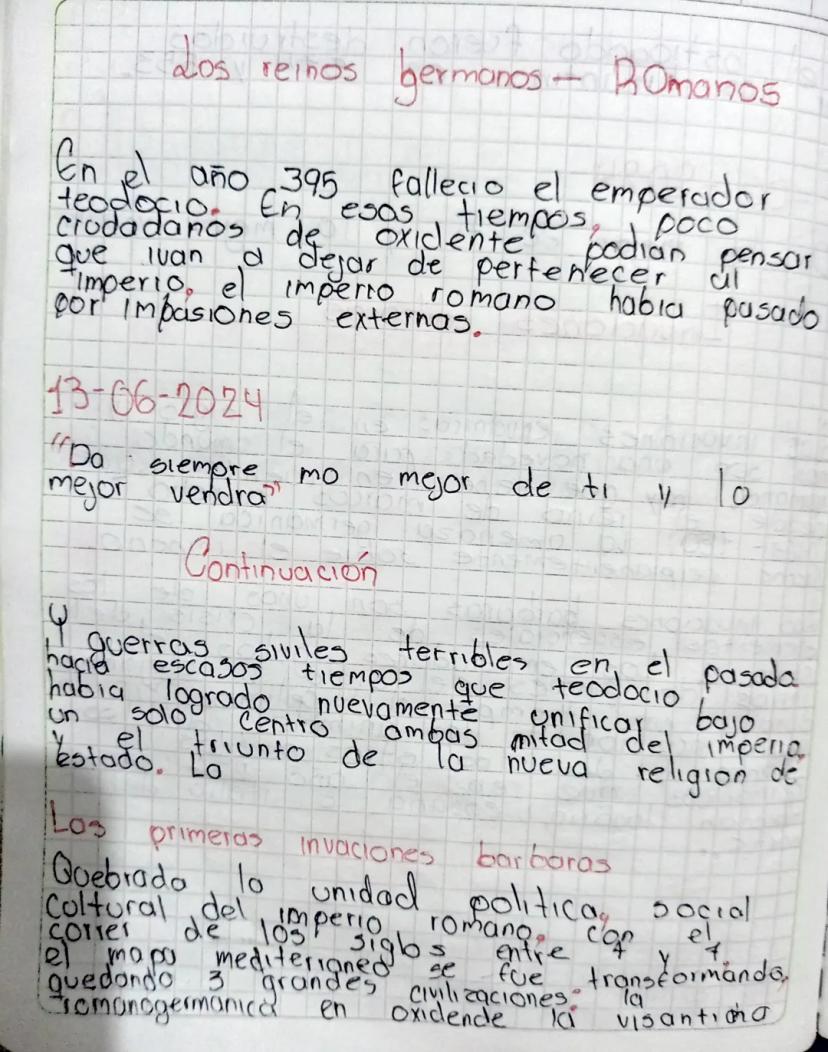 Los reinos germanos - ROmanos
En el año 395 fallecio el emperador
teodocio. En esos tiempos, poco
ciodadanos de oxidente podian pensar
que ivan a dejar de pertenecer al
imperio. el imperio romano habia pasado
por impasiones externas.
13-06-2024
"Da siempre mo mejor de ti y lo
mejor vendra"
Continuación
Y guerras siviles terribles en el pasada
hacia escasos tiempos que teodocio
habia logrado nuevamente unificar bajo
un solo centro ambas mitad del imperio
y el triunto de la nueva religion de
Estado. La
Las primeras invaciones barbaras
Quebrada la unidad politica, social
coltural del imperio romano. con el
correr de los siglos entre 4 y 7.
el mapa mediterraneo se fue transformando,
quedando 3 grandes civilizaciones. la
romanogermanica en oxidende la visantina